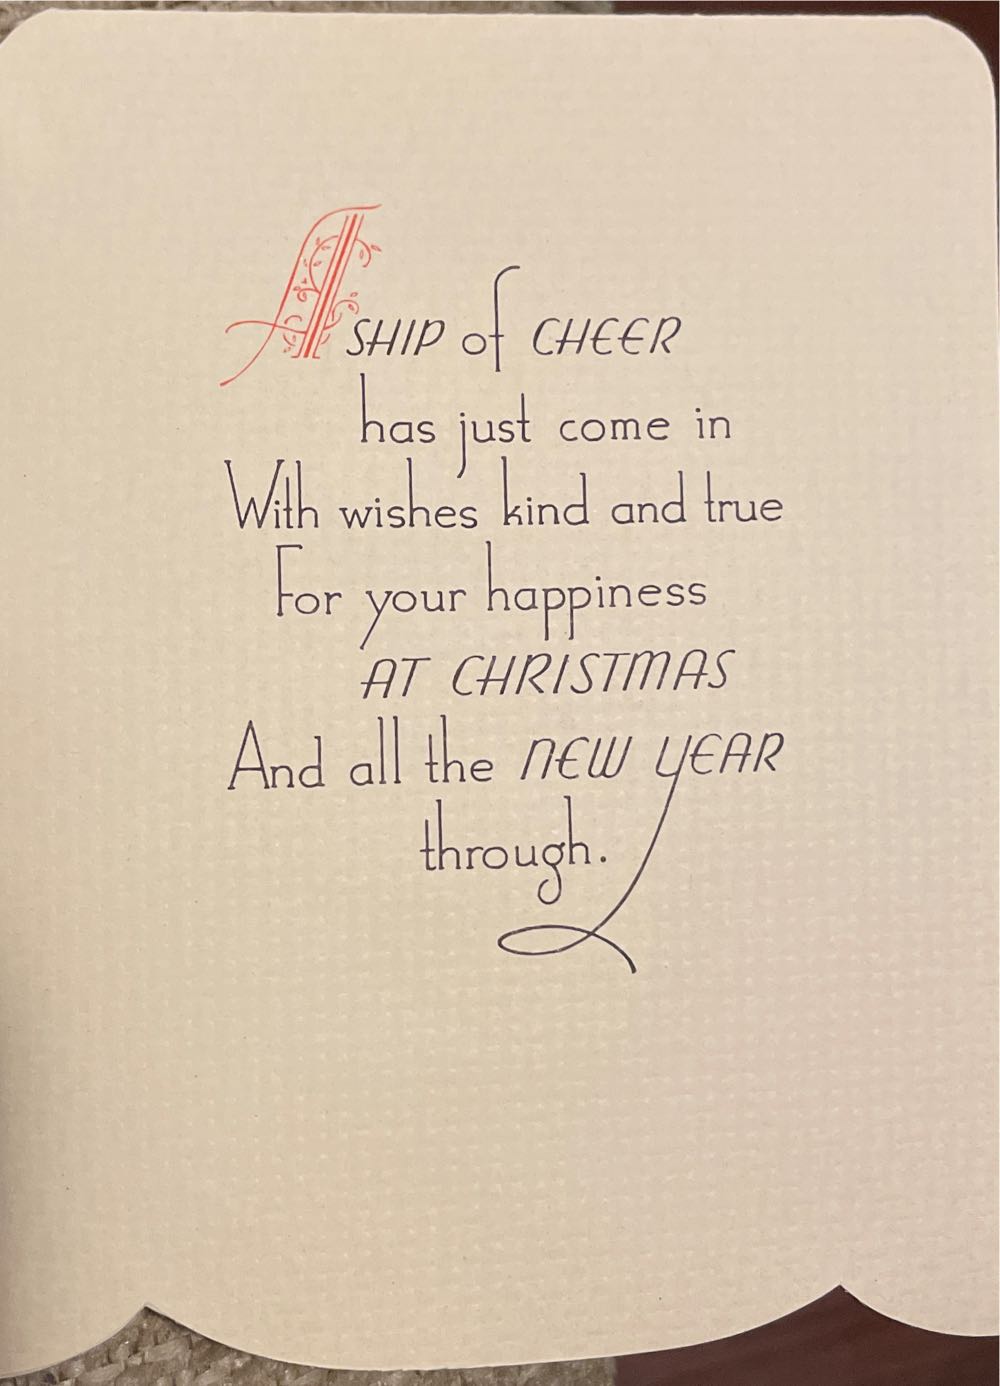 A SHIP of CHEER
has just come in
With wishes kind and true
For your happiness
AT CHRISTMAS
And all the NEW YEAR
through.